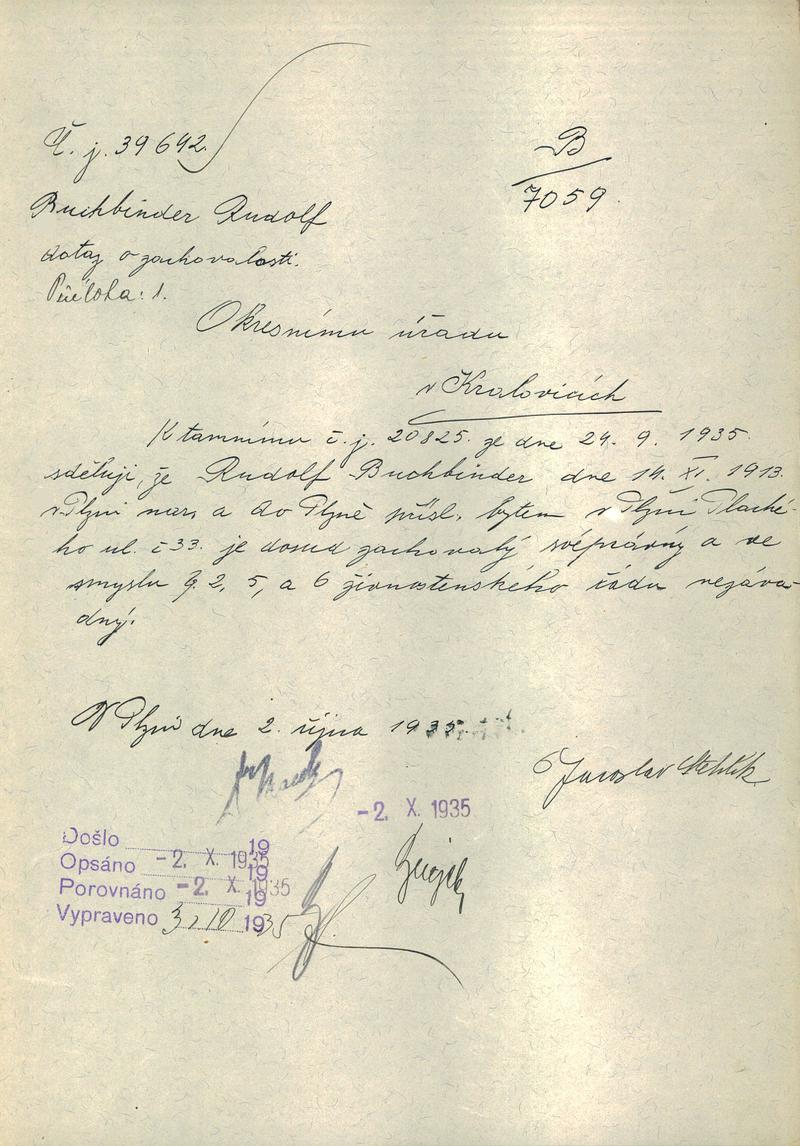 Č. j. 39642.
B
7059.
Buchbinder Rudolf
dotaz o zachovalosti.
Příloha: 1.
Okresnímu úřadu
v Kralovicích
K tamnímu č. j. 20825. ze dne 24. 9. 1935.
sděluji, že Rudolf Buchbinder dne 14. XI. 1913.
v Plzni nar. a do Plzně přísl. bytem v Plzni Plaché-
ho ul. č 33. je dosud zachovalý svéprávný a ve
smyslu §. 2, 5, a 6 živnostenského řádu nezáva-
dný.
V Plzni dne 2. října 1935.
Jaroslav Stehlík.
-2. X. 1935
Došlo 19
Opsáno -2. X. 1935 19
Porovnáno -2. X. 1935 19
Vypraveno 3/10 1935